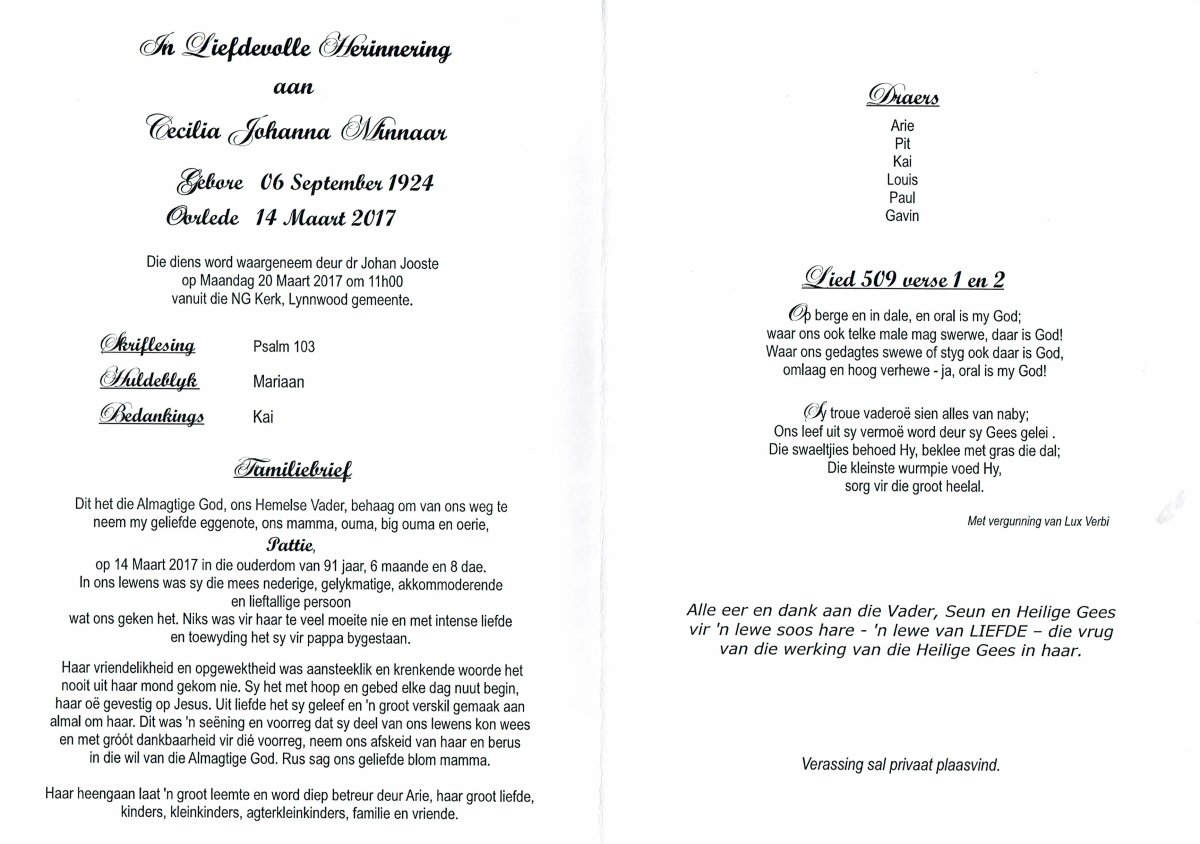 In Liefdevolle Herinnering
aan
Cecilia Johanna Minnaar
Gebore 06 September 1924
Oorlede 14 Maart 2017
Die diens word waargeneem deur dr Johan Jooste
op Maandag 20 Maart 2017 om 11h00
vanuit die NG Kerk, Lynnwood gemeente.
Skriflesing Psalm 103
Huldeblyk Mariaan
Bedankings Kai
Familiebrief
Dit het die Almagtige God, ons Hemelse Vader, behaag om van ons weg te
neem my geliefde eggenote, ons mamma, ouma, big ouma en oerie,
Pattie,
op 14 Maart 2017 in die ouderdom van 91 jaar, 6 maande en 8 dae.
In ons lewens was sy die mees nederige, gelykmatige, akkommoderende
en lieftallige persoon
wat ons geken het. Niks was vir haar te veel moeite nie en met intense liefde
en toewyding het sy vir pappa bygestaan.
Haar vriendelikheid en opgewektheid was aansteeklik en krenkende woorde het
nooit uit haar mond gekom nie. Sy het met hoop en gebed elke dag nuut begin,
haar oë gevestig op Jesus. Uit liefde het sy geleef en 'n groot verskil gemaak aan
almal om haar. Dit was 'n seëning en voorreg dat sy deel van ons lewens kon wees
en met gróót dankbaarheid vir dié voorreg, neem ons afskeid van haar en berus
in die wil van die Almagtige God. Rus sag ons geliefde blom mamma.
Haar heengaan laat 'n groot leemte en word diep betreur deur Arie, haar groot liefde,
kinders, kleinkinders, agterkleinkinders, familie en vriende.
Draers
Arie
Pit
Kai
Louis
Paul
Gavin
Lied 509 verse 1 en 2
Op berge en in dale, en oral is my God;
waar ons ook telke male mag swerwe, daar is God!
Waar ons gedagtes swewe of styg ook daar is God,
omlaag en hoog verhewe - ja, oral is my God!
Sy troue vaderoë sien alles van naby;
Ons leef uit sy vermoë word deur sy Gees gelei .
Die swaeltjies behoed Hy, beklee met gras die dal;
Die kleinste wurmpie voed Hy,
sorg vir die groot heelal.
Met vergunning van Lux Verbi
Alle eer en dank aan die Vader, Seun en Heilige Gees
vir 'n lewe soos hare - 'n lewe van LIEFDE – die vrug
van die werking van die Heilige Gees in haar.
Verassing sal privaat plaasvind.